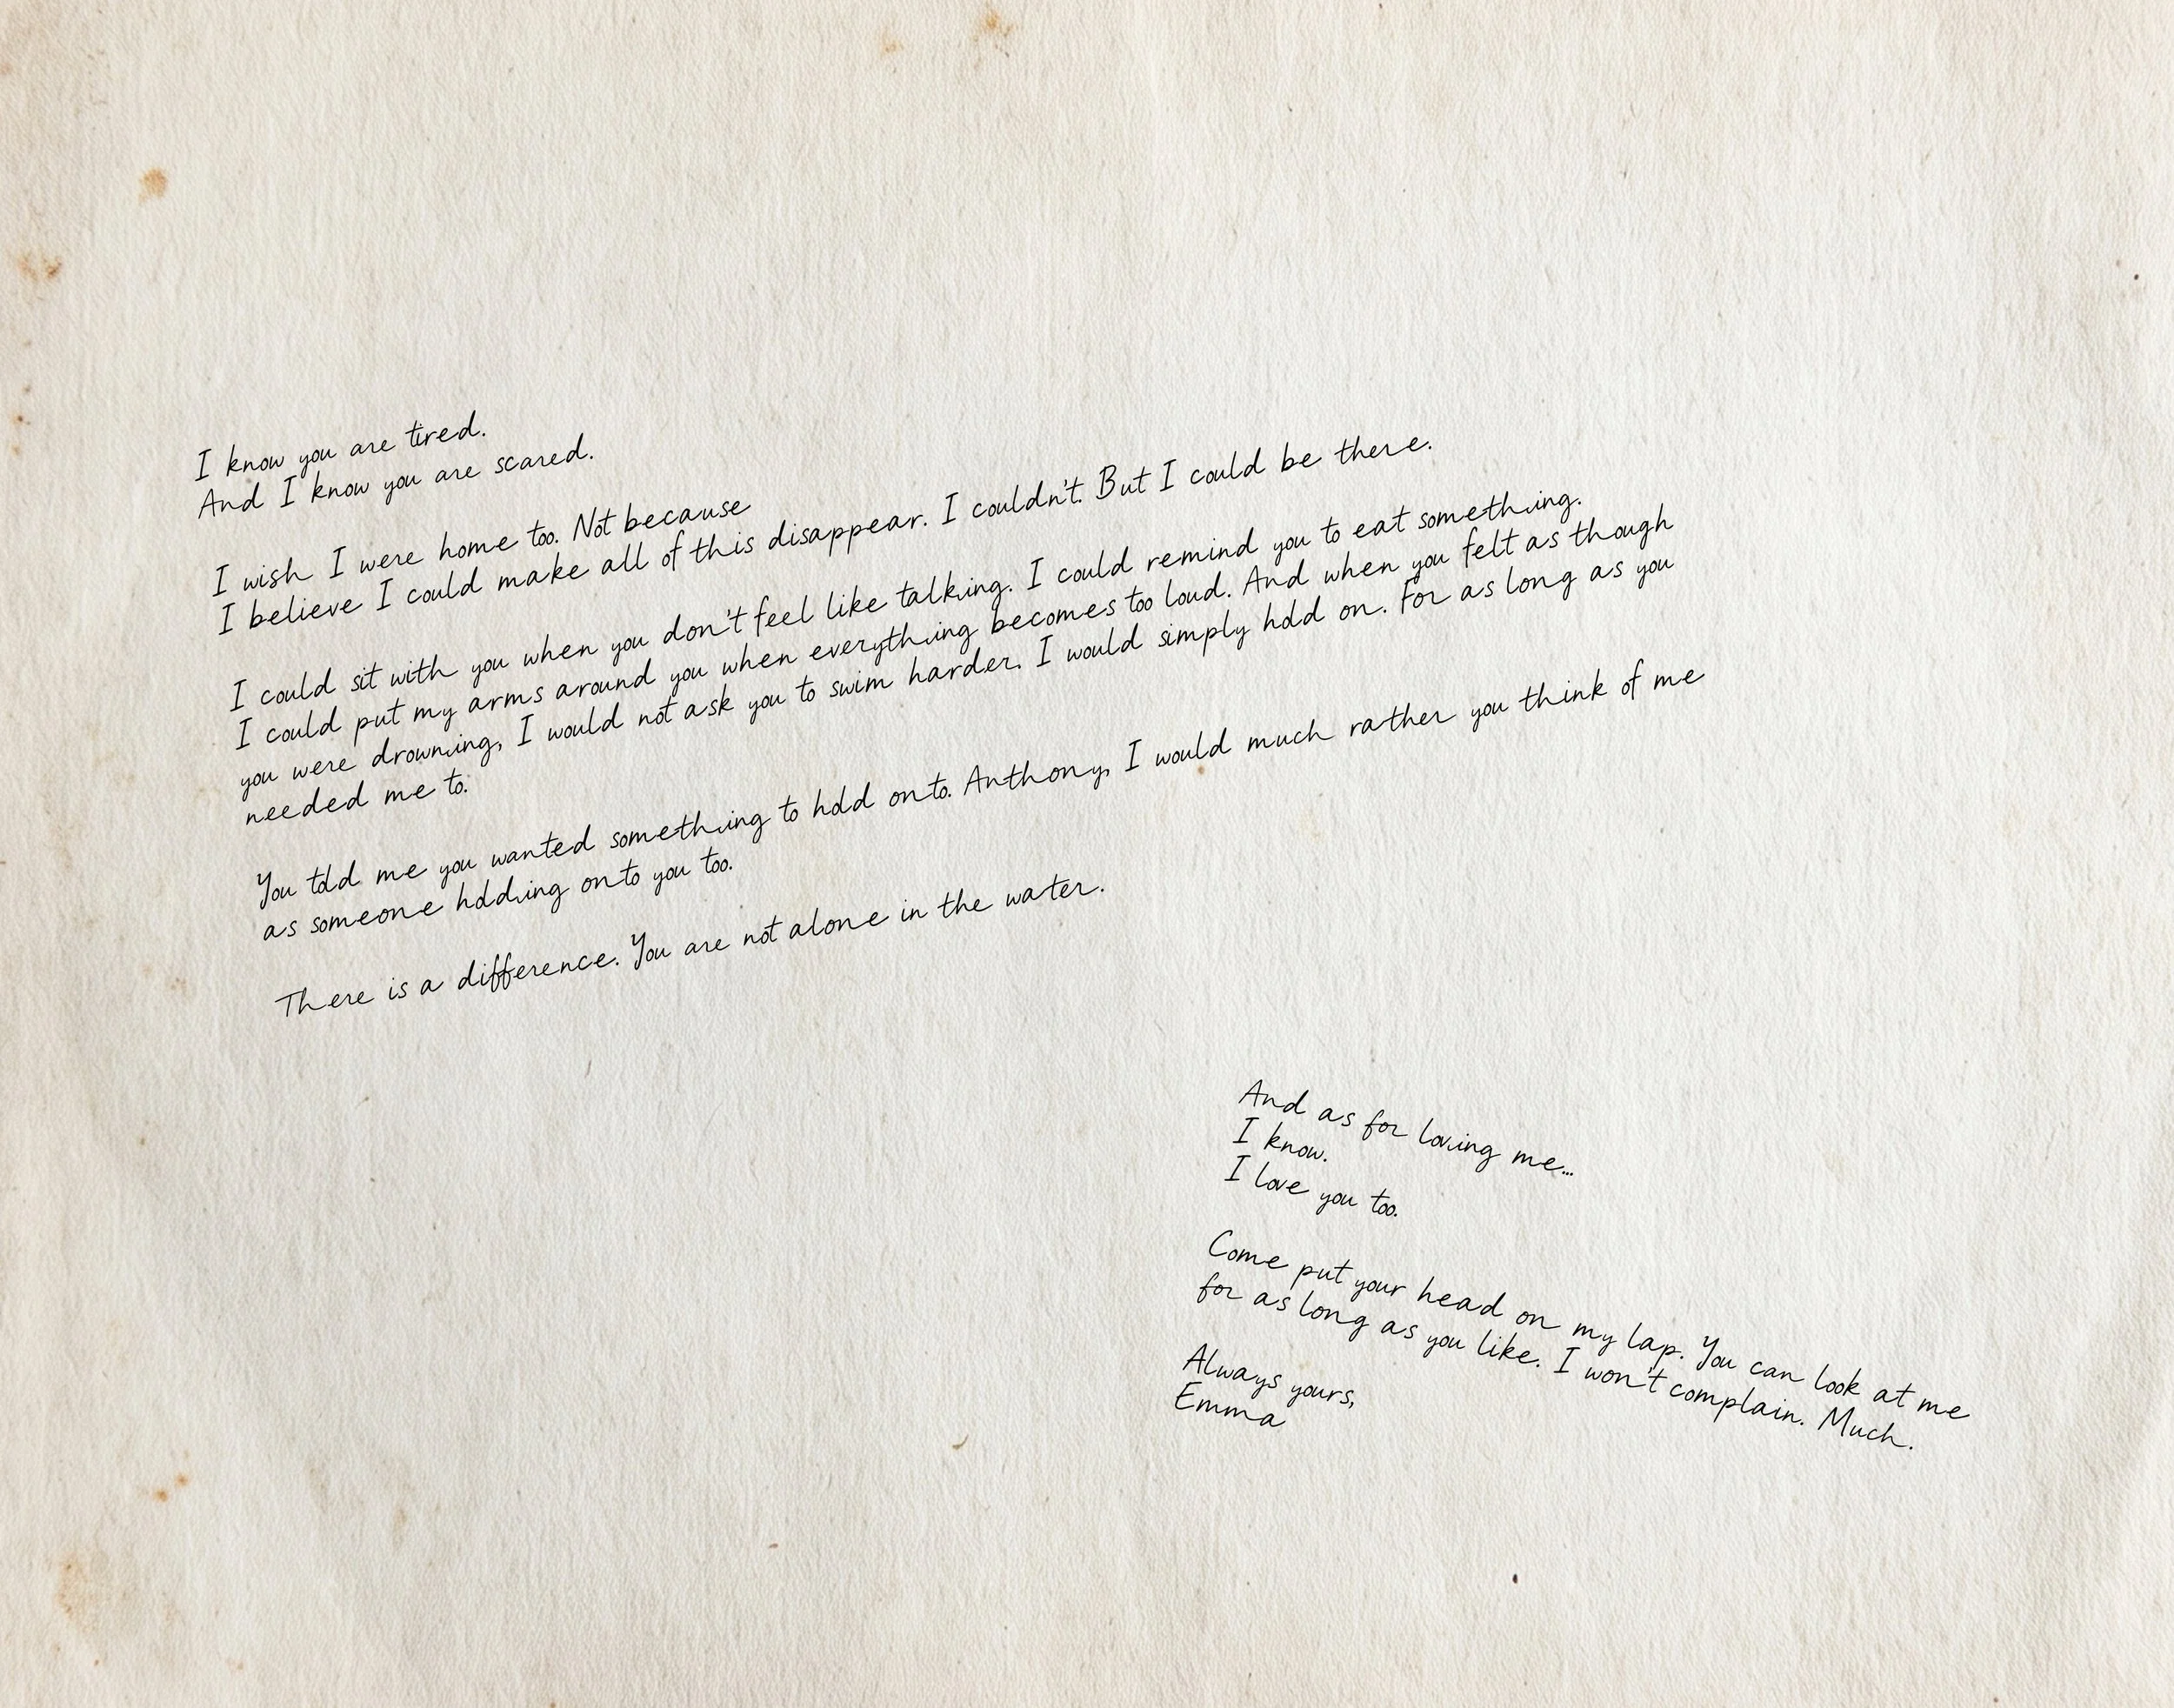 I know you are tired.
And I know you are scared.
I wish I were home too. Not because
I believe I could make all of this disappear. I couldn't. But I could be there.
I could sit with you when you don't feel like talking. I could remind you to eat something.
I could put my arms around you when everything becomes too loud. And when you felt as though
you were drowning, I would not ask you to swim harder. I would simply hold on. For as long as you
needed me to.
You told me you wanted something to hold onto. Anthony, I would much rather you think of me
as someone holding onto you too.
There is a difference. You are not alone in the water.
And as for loving me...
I know.
I love you too.
Come put your head on my lap. You can look at me
for as long as you like. I won't complain. Much.
Always yours,
Emma